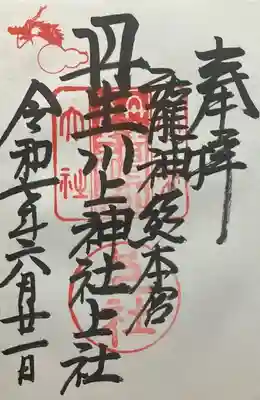 奉拝
龍神総本宮
丹生川上神社上社
令和七年六月廿一日